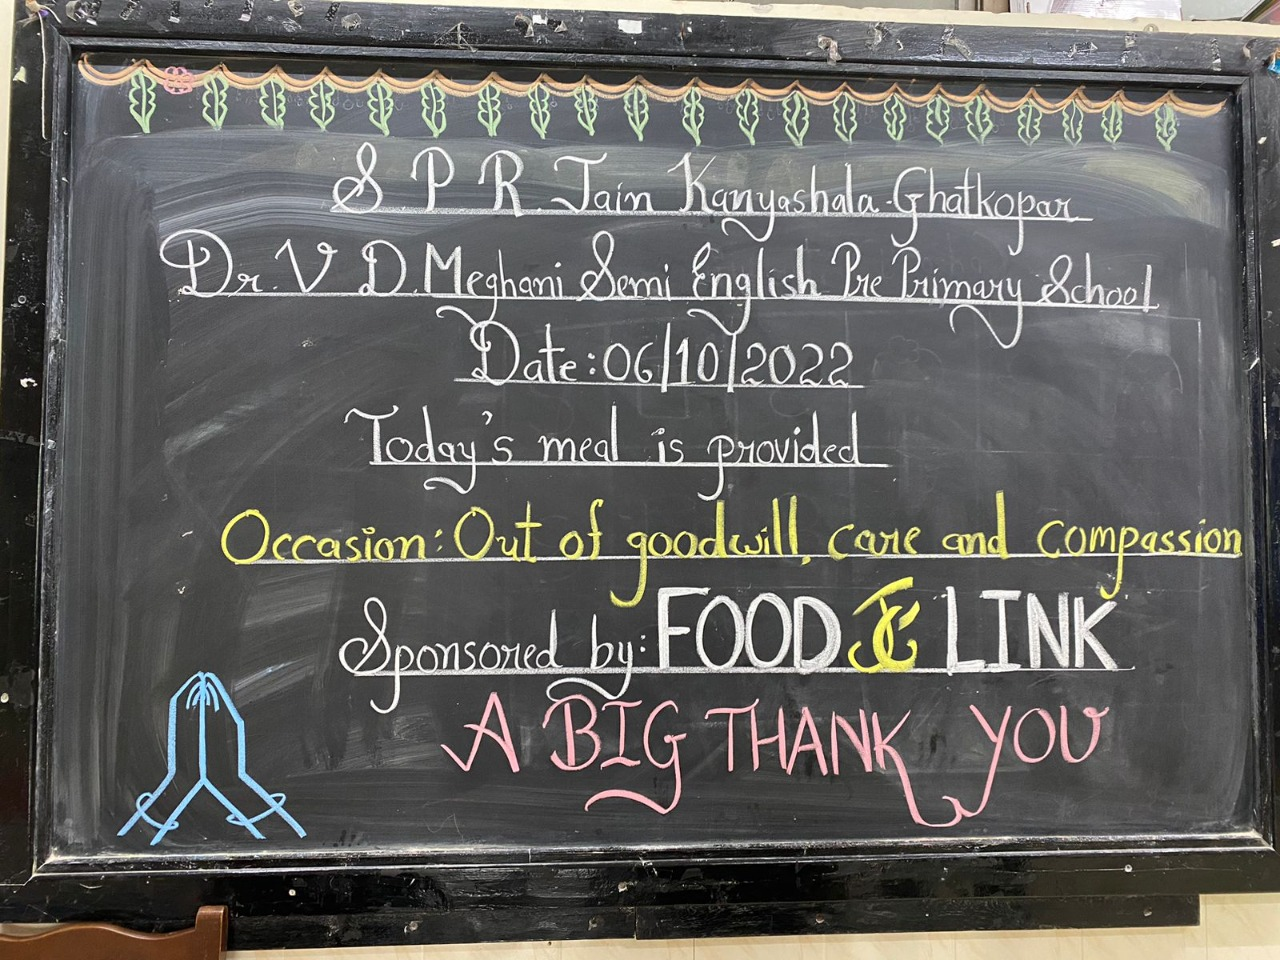 S P R. Jain Kanyashala.Ghatkopar
Dr. V D. Meghani Semi English Pre Primary School
Date:06/10/2022
Today's meal is provided
Occasion: Out of goodwill, care and compassion
Sponsored by: FOOD LINK
A BIG THANK YOU